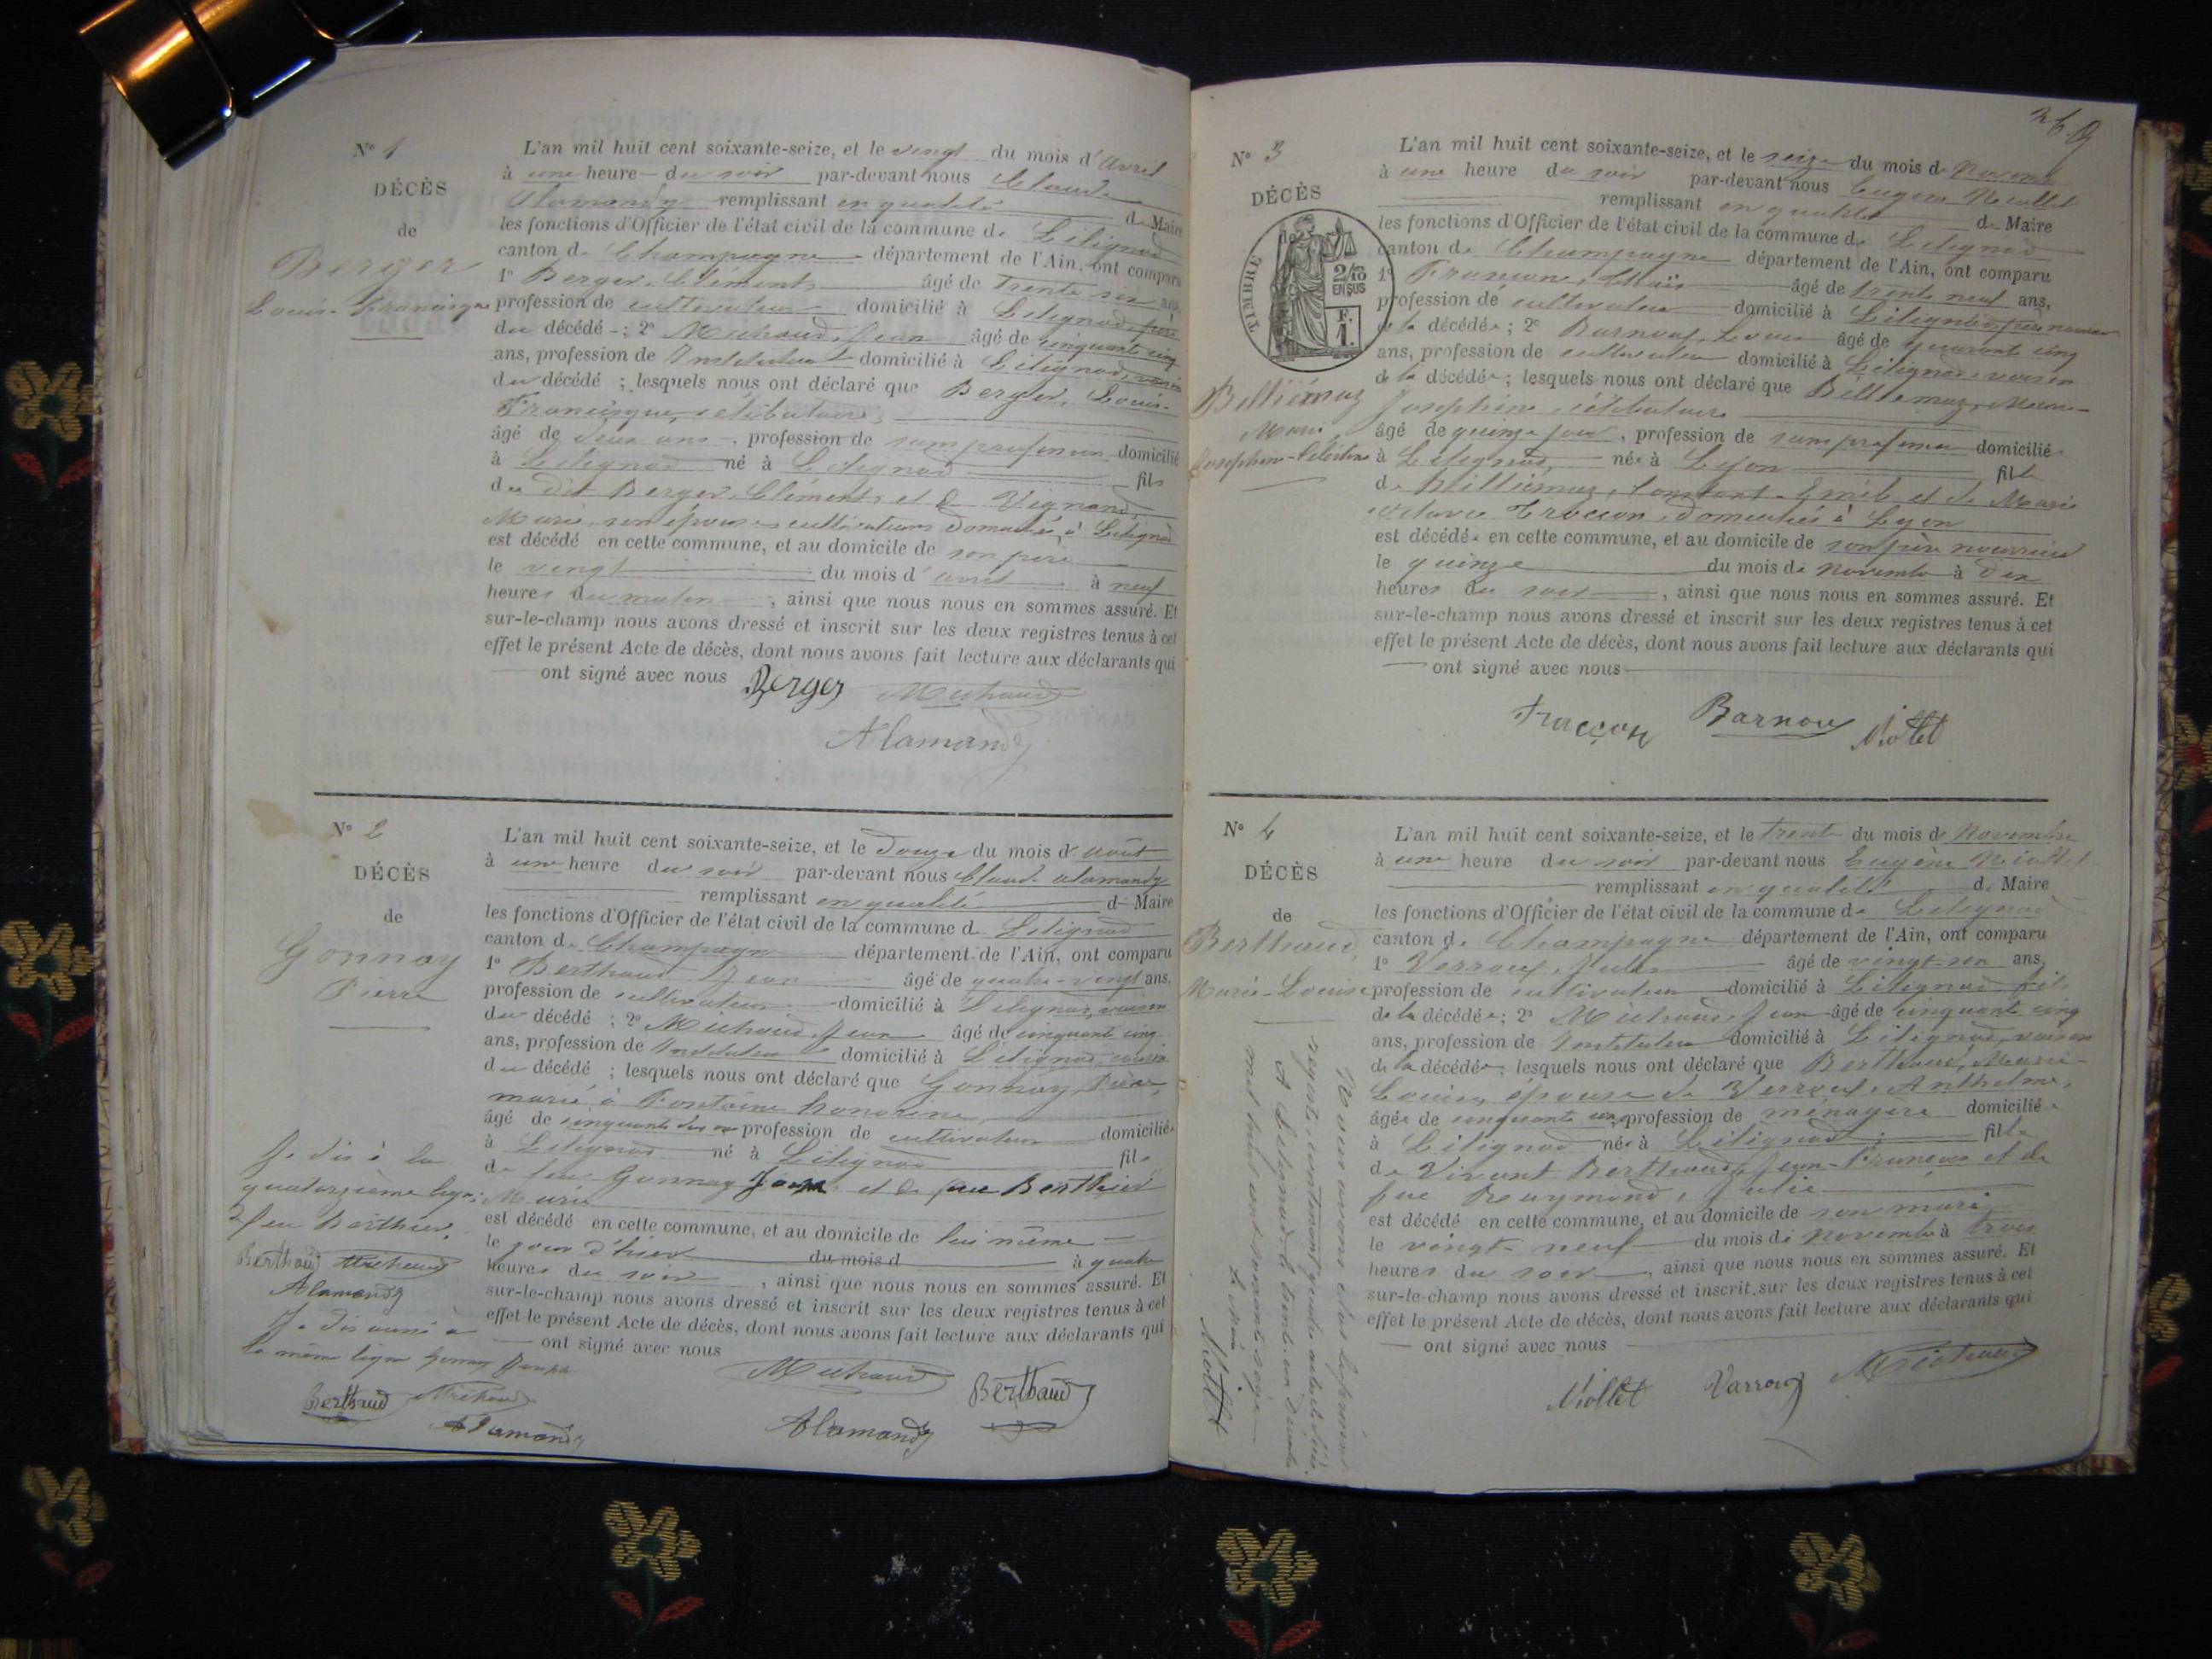 N° 1
DÉCÈS
de
Berger
Louis-Francisque
L'an mil huit cent soixante-seize, et le vingt du mois d'avril
à une heure du soir par-devant nous Claude
Alamandy remplissant en qualité de Maire
les fonctions d'Officier de l'état civil de la commune de Lilignod
canton de Champagne département de l'Ain, ont comparu
1° Berger, Clément âgé de trente six ans,
profession de cultivateur domicilié à Lilignod, père
du décédé ; 2° Michaud, Jean âgé de cinquante cinq
ans, profession de Instituteur domicilié à Lilignod, voisin
du décédé ; lesquels nous ont déclaré que Berger, Louis-
Francisque, célibataire,
âgé de deux ans, profession de sans profession domicilié
à Lilignod né à Lilignod fils
du dit Berger, Clément, et de
Marie, son épouse cultivateurs domiciliés à Lilignod
est décédé en cette commune, et au domicile de son père
le vingt du mois d'avril à neuf
heures du matin, ainsi que nous nous en sommes assuré. Et
sur-le-champ nous avons dressé et inscrit sur les deux registres tenus à cet
effet le présent Acte de décès, dont nous avons fait lecture aux déclarants qui
ont signé avec nous
Berger Michaud
Alamandy
N° 2
DÉCÈS
de
Gonnay
Pierre
L'an mil huit cent soixante-seize, et le douze du mois d'août
à une heure du soir par-devant nous Claude alamandy
remplissant en qualité de Maire
les fonctions d'Officier de l'état civil de la commune de Lilignod
canton de Champagne département de l'Ain, ont comparu
1° Berthaud Jean âgé de quatre-vingt ans,
profession de cultivateur domicilié à Lilignod, voisin
du décédé ; 2° Michaud, Jean âgé de cinquante cinq
ans, profession de Instituteur domicilié à Lilignod, voisin
du décédé ; lesquels nous ont déclaré que Gonnay, Pierre,
marié à Fontaine honorine,
âgé de cinquante profession de cultivateur domicilié
à Lilignod né à Lilignod fils
de feu Gonnay et de feue Berthier
Marie
est décédé en cette commune, et au domicile de lui même
le jour d'hier du mois d à quatre
heures du soir, ainsi que nous nous en sommes assuré. Et
sur-le-champ nous avons dressé et inscrit sur les deux registres tenus à cet
effet le présent Acte de décès, dont nous avons fait lecture aux déclarants qui
ont signé avec nous
Michaud Berthaud
Alamandy
Je dis à la
quatorzième ligne:
feu Berthier.
Berthaud Michaud
Alamandy
Je dis aussi à
la même ligne Gonnay Joseph
Berthaud Michaud
Alamandy
N° 3
DÉCÈS
de
TIMBRE
2/10
EN SUS
F.
1.
Billiémaz
Marie
Joséphine-Célestine
L'an mil huit cent soixante-seize, et le seize du mois de Novembre
à une heure du soir par-devant nous Eugène Niollet
remplissant en qualité de Maire
les fonctions d'Officier de l'état civil de la commune de Lilignod
canton de Champagne département de l'Ain, ont comparu
1° âgé de trente neuf ans,
profession de cultivateur domicilié à Lilignod, père nourricier
de la décédée ; 2° Barnoux, Louis âgé de quarante cinq
ans, profession de cultivateur domicilié à Lilignod, voisin
de la décédée ; lesquels nous ont déclaré que Billiémaz, Marie-
Joséphine, célibataire
âgé de quinze jours, profession de sans profession domiciliée
à Lilignod, née à Lyon fille
de Billiémaz, Constant-Emile et de Marie
Troccon, domiciliés à Lyon
est décédée en cette commune, et au domicile de son père nourricier
le quinze du mois de novembre à dix
heures du soir, ainsi que nous nous en sommes assuré. Et
sur-le-champ nous avons dressé et inscrit sur les deux registres tenus à cet
effet le présent Acte de décès, dont nous avons fait lecture aux déclarants qui
ont signé avec nous
Troccon Barnoux Niollet
N° 4
DÉCÈS
de
Berthaud,
Marie-Louise
L'an mil huit cent soixante-seize, et le trente du mois de Novembre
à une heure du soir par-devant nous Eugène Niollet
remplissant en qualité de Maire
les fonctions d'Officier de l'état civil de la commune de Lilignod
canton de Champagne département de l'Ain, ont comparu
1° Verroux, Jules âgé de vingt-six ans,
profession de cultivateur domicilié à Lilignod fils
de la décédée ; 2° Michaud, Jean âgé de cinquante cinq
ans, profession de Instituteur domicilié à Lilignod, voisin
de la décédée ; lesquels nous ont déclaré que Berthaud, Marie-
Louise, épouse de Verroux, Anthelme,
âgée de cinquante profession de ménagère domiciliée
à Lilignod née à Lilignod fille
de Vivant Berthaud, Jean-François et de
feue Raymond, Julie
est décédé en cette commune, et au domicile de son mari
le vingt-neuf du mois de novembre à trois
heures du soir, ainsi que nous nous en sommes assuré. Et
sur-le-champ nous avons dressé et inscrit sur les deux registres tenus à cet
effet le présent Acte de décès, dont nous avons fait lecture aux déclarants qui
ont signé avec nous
Niollet Varroux Michaud
Nous avons clos le présent
registre contenant quatre actes de décès.
A Lilignod le trente-un décembre
mil huit cent soixante-seize
Le Maire
Niollet